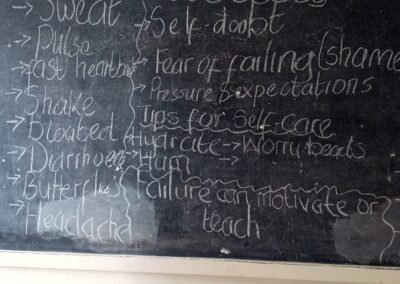 -> Sweat
-> Pulse
-> fast heartbeat
-> Shake
-> Bloated
-> Diarrhoea
-> Butterflies
-> Headache
-> Self-doubt
-> Fear of failing (shame
-> Pressure & expectations
Tips for self-care
Hydrate -> Worry beads
-> Hum ->
Failure can motivate or
teach